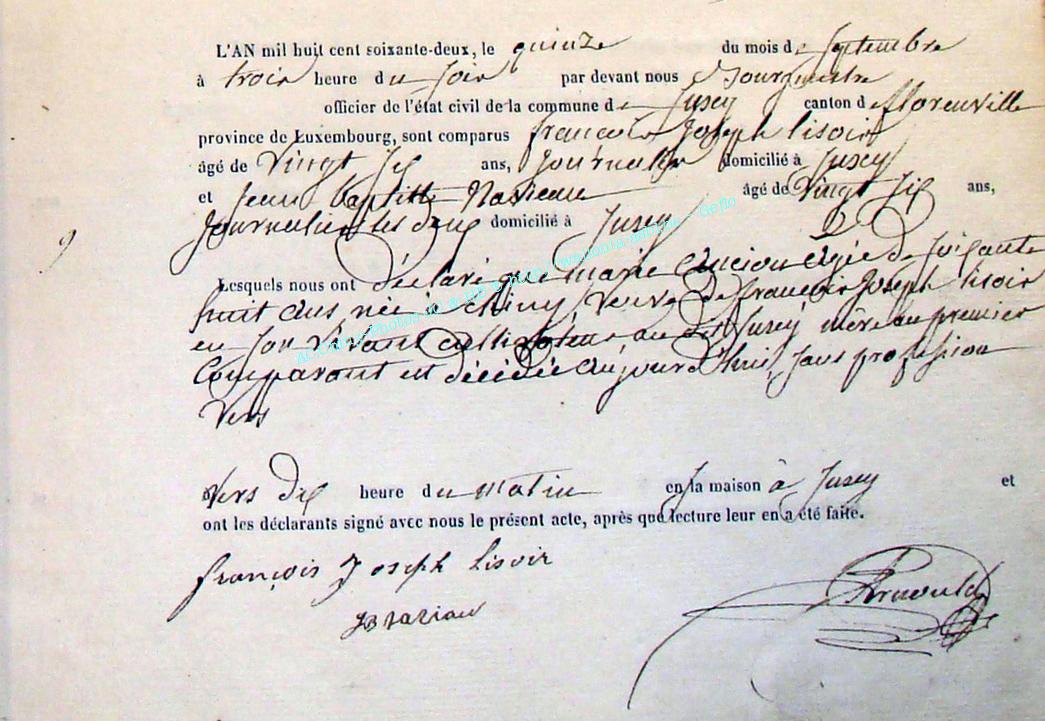 L'AN mil huit cent soixante-deux, le quinze du mois de Septembre
à trois heure du Soir par devant nous Bourgmestre
officier de l'état civil de la commune de Jusey canton de florenville
province de Luxembourg, sont comparus françois Joseph lisoir
âgé de Vingt Six ans, Journalier domicilié à Jusey
et Jean baptiste âgé de Vingt Six ans,
Journaliers les deux domicilié à Jusey
9
Lesquels nous ont déclaré que marie agée de Soixante
huit ans née à chiny, Veuve de françois Joseph lisoir
en Son Vivant Cultivateur au dit Jusey mère au premier
Comparant est décédée aujourd'huis, Sans profession
Vers
Vers dix heure du Matin en Sa maison à Jusey et
ont les déclarants signé avec nous le présent acte, après que lecture leur en a été faite.
françois Joseph Lisoir
Arnould